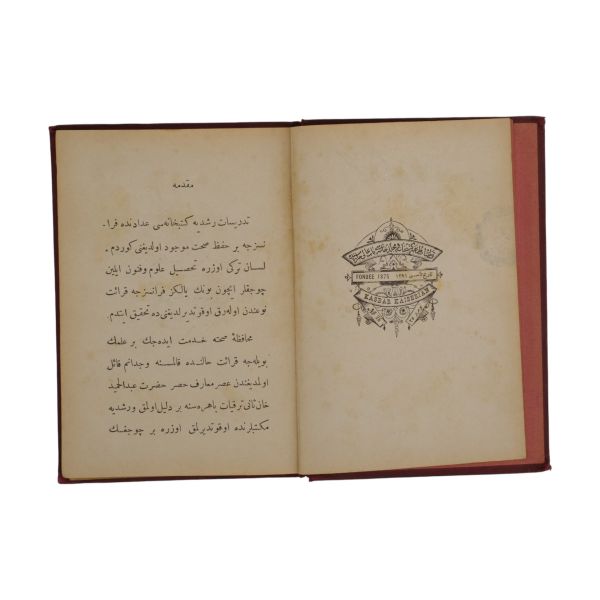 مقدمه
تدریسات رشدیه کتبخانه‌سی عدادنده فرا-
نسزجه بر حفظ صحت موجود اولدیغنی کوردم .
لسان ترکی اوزره تحصیل علوم وفنون ایلین
چوجقلر ایچون بونك یالکز فرانسزجه قرائت
نوعندن اوله‌رق اوقوتدیرلدیغنی ده تحقیق ایتدم .
محافظهٔ صحته خدمت ایده‌جك بر علمك
بویله‌جه قرائت حالنده قالمسنه وجدانم قائل
اولمدیغندن عصر معارف حصر حضرت عبدالحمید
خان ثانی ترقیات باهره‌سنه بر دلیل اولمق ورشدیه
مکتبلرنده اوقوتدیرلمق اوزره بر چوجغك
FONDÉE 1875 ١٢٩١ تاریخ تأسیسی
KASBAR KAISERIAN